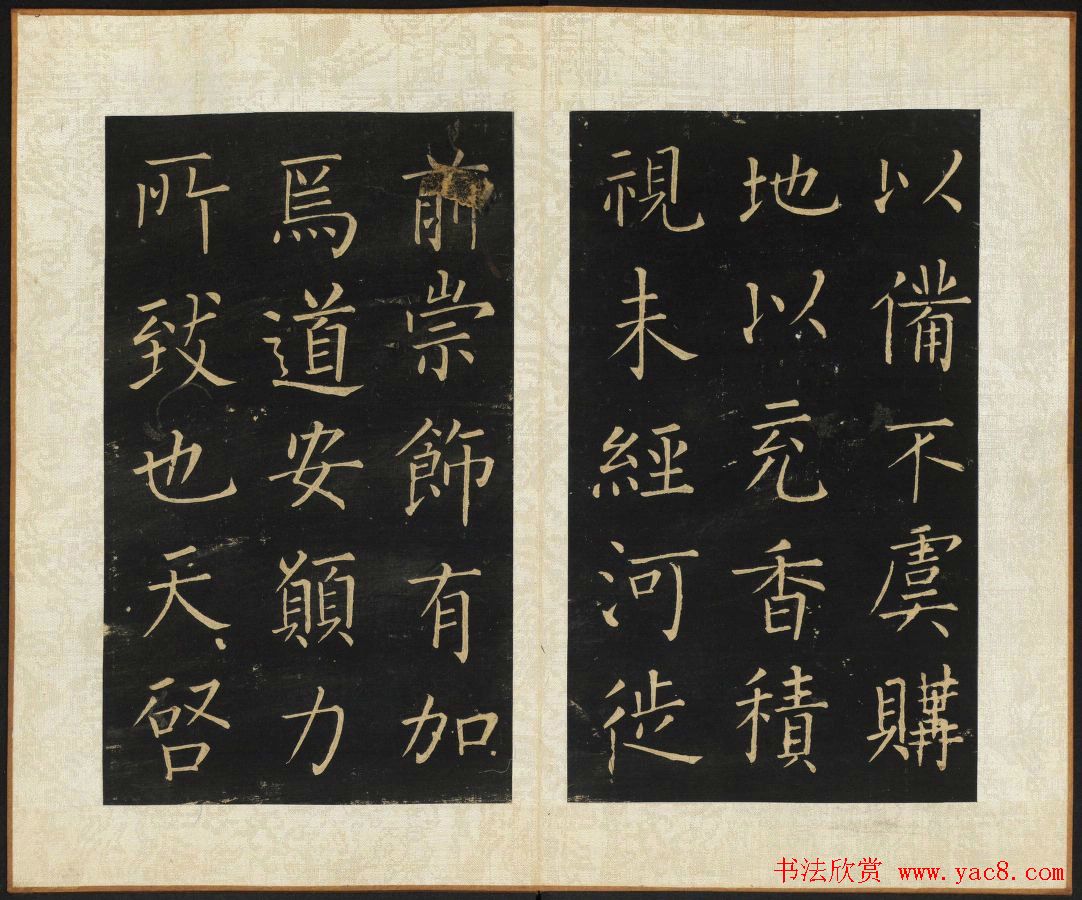 以備不虞購
地以充香積
視未經河徙
前崇飾有加
焉道安顛力
所致也天
啓
书法欣赏 www.yac8.com